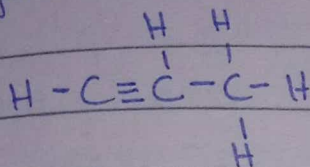 H H
H - C ≡ C - C - H
H